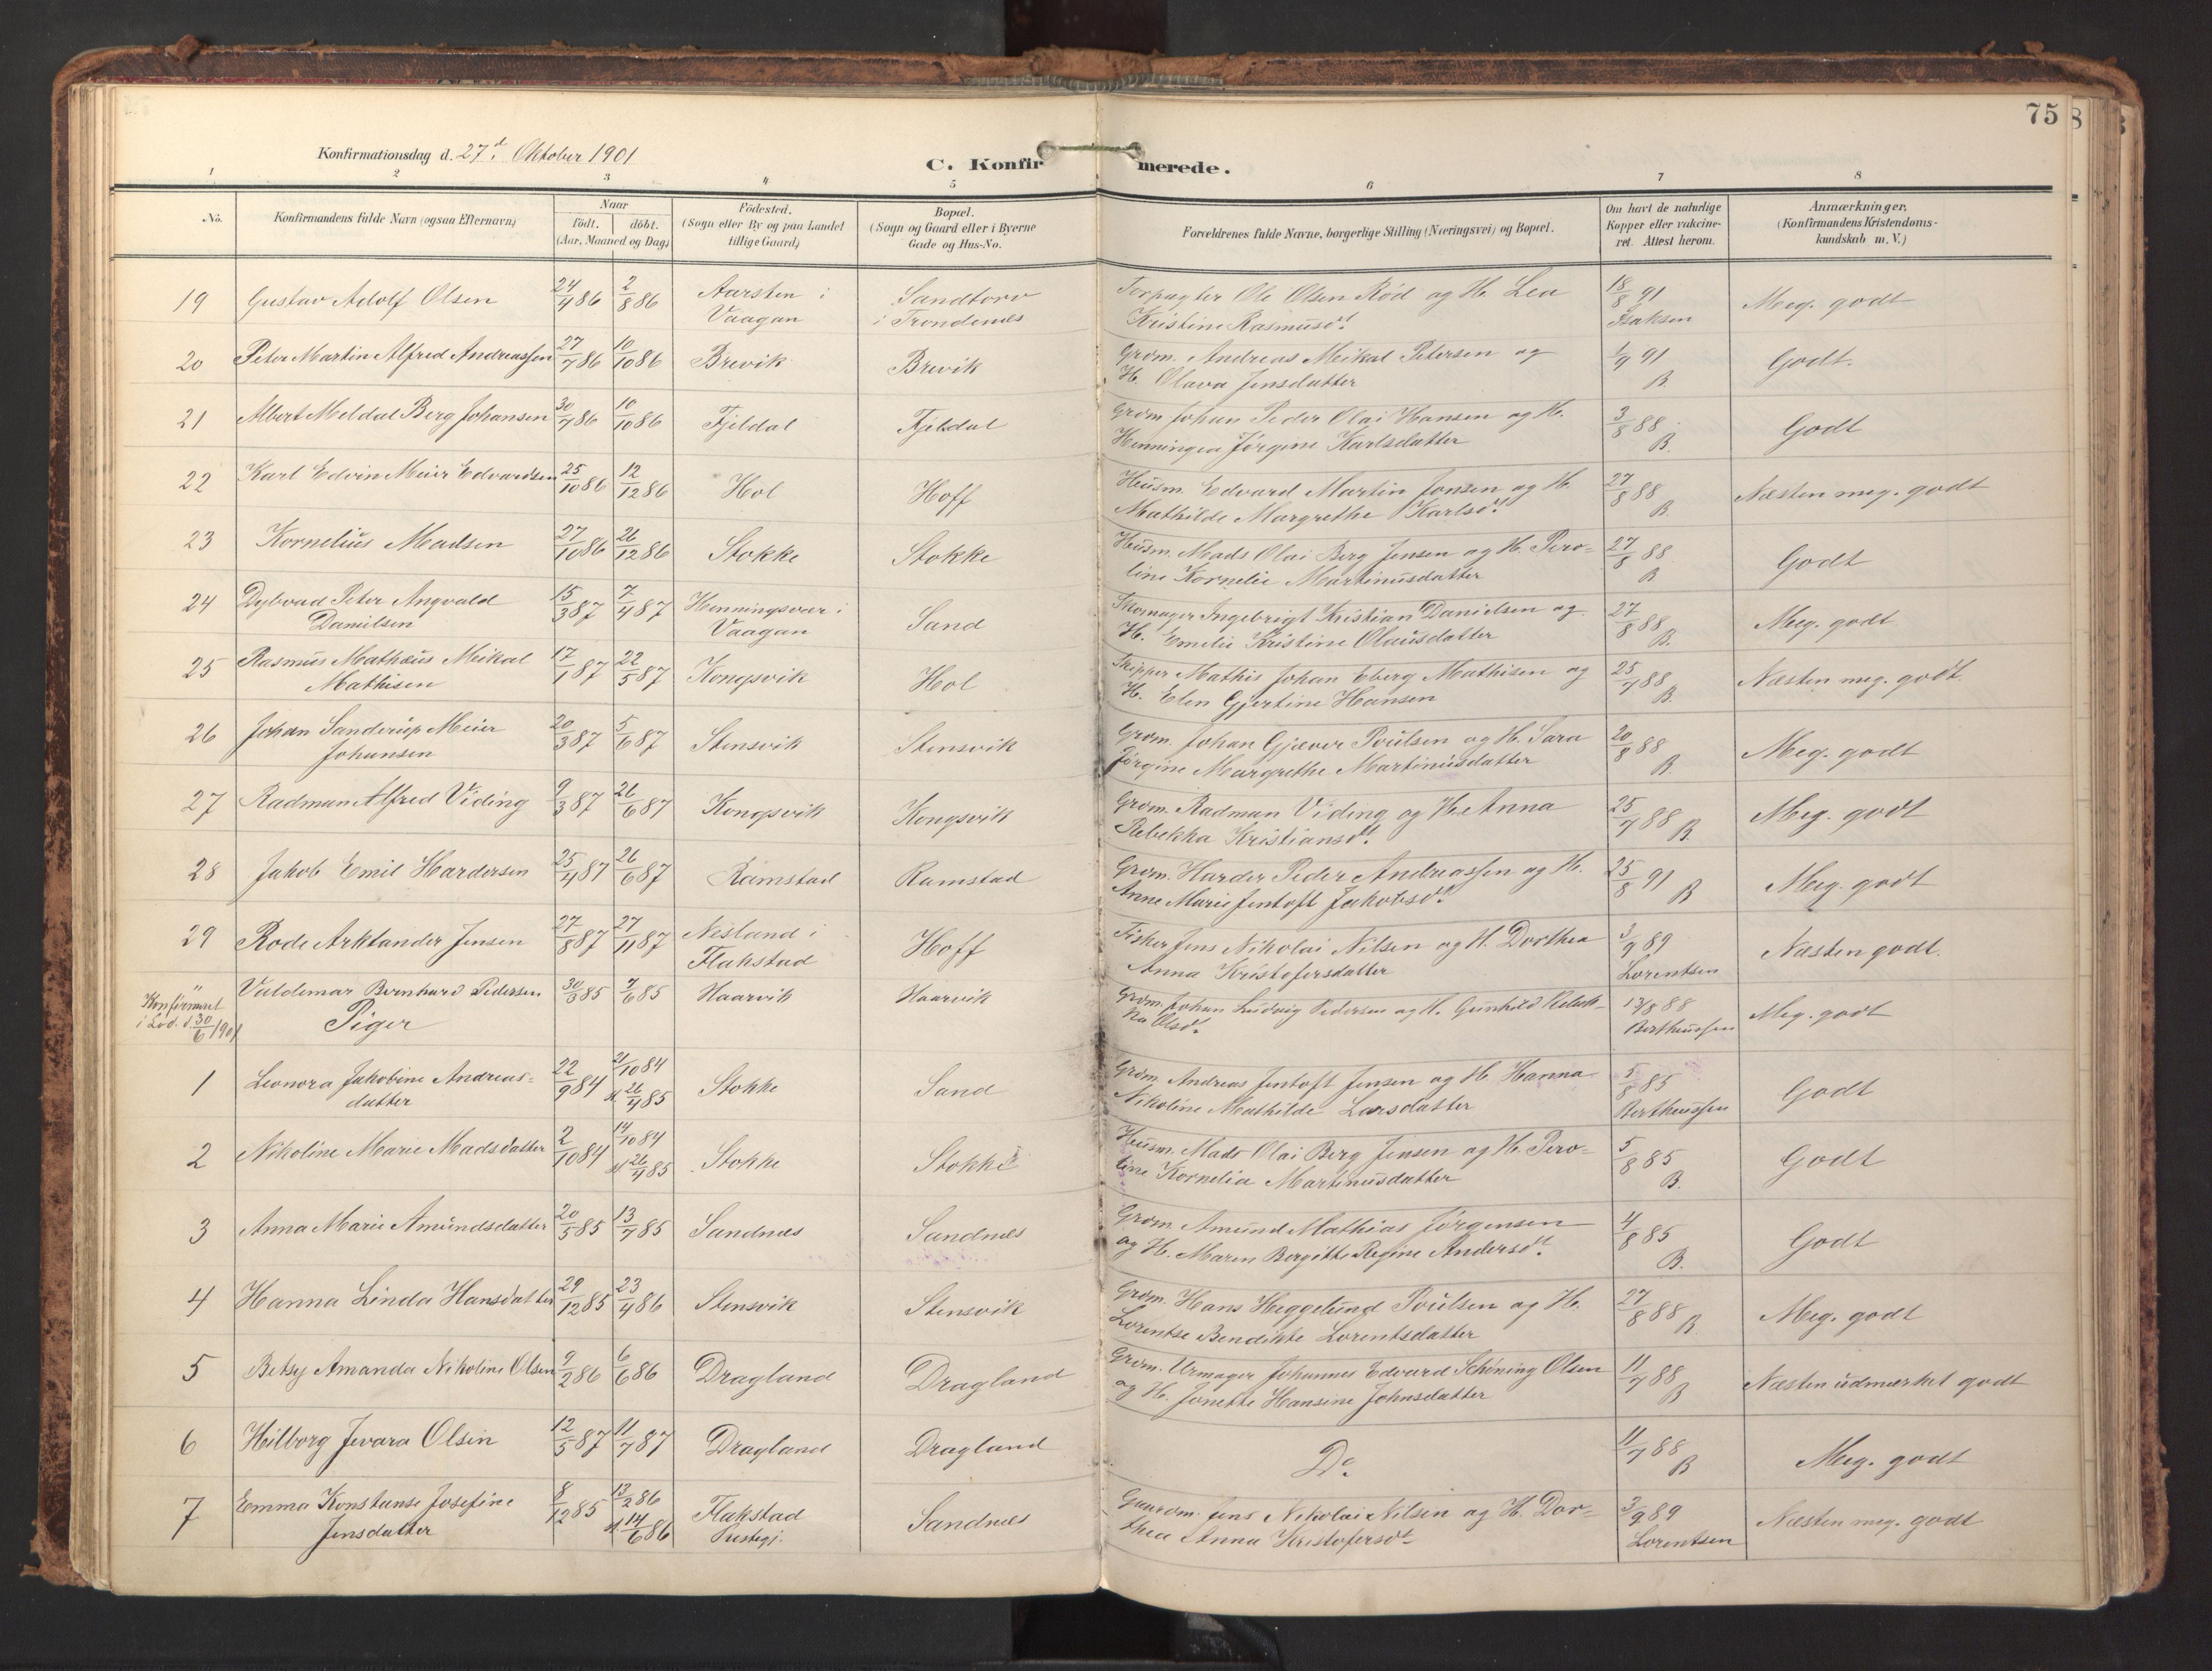 75
Konfirmationsdag d. 27d. Oktober 1901
C. Konfirmerede.
1 2 3 4 5 6 7 8
No. Konfirmandens fulde Navn (ogsaa Efternavn) Naar Födested. Bopæl. Forældrenes fulde Navne, borgerlige Stilling (Næringsvei) og Bopæl. Om havt de naturlige Anmærkninger.
födt. döbt. (Sogn eller By og paa Landet (Sogn og Gaard eller i Byerne Kopper eller vakcine- (Konfirmandens Kristendoms-
(Aar, Maaned og Dag) tillige Gaard) Gade og Hus-No. ret. Attest herom. kundskab m. V.)
19 Gustav Adolf Olsen 24/4 86 2/8 86 Aarsten i Sandtorv Forpagter Ole Olsen Rød og H. Lea 18/8 91 Meg. godt
Vaagan i Trondenæs Kristine Rasmusdt. Isaksen
20 Peter Martin Alfred Andreassen 27/7 86 10/10 86 Brevik Brevik Grdm. Andreas Meikal Petersen og 1/9 91 Godt.
H. Olava Jensdatter B
21 Albert Meldal Berg Johansen 30/7 86 10/10 86 Fjeldal Fjeldal Grdm. Johan Peder Olai Hansen og H. 3/8 88 Godt
Henningea Jørgine Karlsdatter B.
22 Karl Edvin Meier Edvardsen 25/10 86 12/12 86 Hol Hoff Husm. Edvard Martin Jonsen og H. 27/8 88 Næsten meg. godt
Mathilde Margrethe Karlsdt. B.
23 Kornelius Madsen 27/10 86 26/12 86 Stokke Stokke Husm. Mads Olai Berg Jensen og H. Pero- 27/8 88 Godt
line Kornelie Martinusdatter B
24 Dybvad Peter Angvald 15/3 87 7/4 87 Henningsvær i Sand Skomager Ingebrigt Kristian Danielsen og 27/8 88 Meg. godt
Danielsen Vaagan H. Emelie Kristine Olausdatter B.
25 Rasmus Mathæus Meikal 17/1 87 22/5 87 Kongsvik Hol Skipper Mathis Johan Eberg Mathisen og 25/7 88 Næsten meg. godt.
Mathisen H. Elen Gjertine Hansen B.
26 Johan Sanderup Meier 20/3 87 5/6 87 Stensvik Stensvik Grdm. Johan Gjæver Poulsen og H. Sara 20/8 88 Meg. godt
Johansen Jörgine Margrethe Martinusdatter B.
27 Radman Alfred Viding 9/3 87 26/6 87 Kongsvik Kongsvik Grdm. Radman Viding og H. Anna 25/7 88 Meg. godt
Rebekka Kristiansdt. B.
28 Jakob Emil Hardersen 25/4 87 26/6 87 Ramstad Ramstad Grdm. Harder Peder Andreassen og H. 25/8 91 Meg. godt
Anne Marie Jentoft Jakobsdt. B
29 Rode Arktander Jensen 27/8 87 27/11 87 Nesland i Hoff Fisker Jens Nikolai Nilsen og H. Dorthea 3/9 89 Næsten godt.
Flakstad Anna Kristofersdatter Lorentsen
" Valdemar Bernhard Pedersen 30/3 85 7/6 85 Haarvik Haarvik Grdm. Johan Ludvig Pedersen og H. Gunhild Rebek- 13/8 88 Meg. godt
Konfirmeret ka Olsdt. Bertheussen
i Lød. d. 30/6 1901 Piger
1 Leonora Jakobine Andreas- 22/9 84 21/10 84 Stokke Sand Grdm. Andreas Jentoft Jensen og H. Hanna 5/8 85 Godt
datter st. 26/4 85 Nikoline Mathilde Larsdatter Bertheussen
2 Nikoline Marie Madsdatter 2/10 84 14/10 84 Stokke Stokke Husm. Mads Olai Berg Jensen og H. Pero- 5/8 85 Godt
st. 26/4 85 line Kornelia Martinusdatter B.
3 Anna Marie Amundsdatter 20/5 85 13/7 85 Sandnæs Sandnæs Grdm. Amund Mathias Jørgensen 4/8 85 Godt
og H. Maren Bergitte Regine Andersdt. B.
4 Hanna Linda Hansdatter 29/12 85 23/4 86 Stensvik Stensvik Grdm. Hans Heggelund Poulsen og H. 27/8 88 Meg. godt
Lorentse Bendikte Lorentsdatter B.
5 Betsy Amanda Nikoline Olsen 9/2 86 6/6 86 Dragland Dragland Grdm. Urmager Johannes Edvard Schöning Olsen 11/7 88 Næsten udmærket godt
og H. Jonette Hansine Johnsdatter B
6 Hilborg Jevara Olsen 12/5 87 11/7 87 Dragland Dragland Do. 11/7 88 Meg. godt
B
7 Emma Konstanse Josefine 8/12 85 13/2 86 Flakstad Sandnæs Gaardm. Jens Nikolai Nilsen og H. Dor- 3/9 89 Næsten meg. godt
Jensdatter st. 14/6 86 Prestegj. thea Anna Kristofersdt. Lorentsen